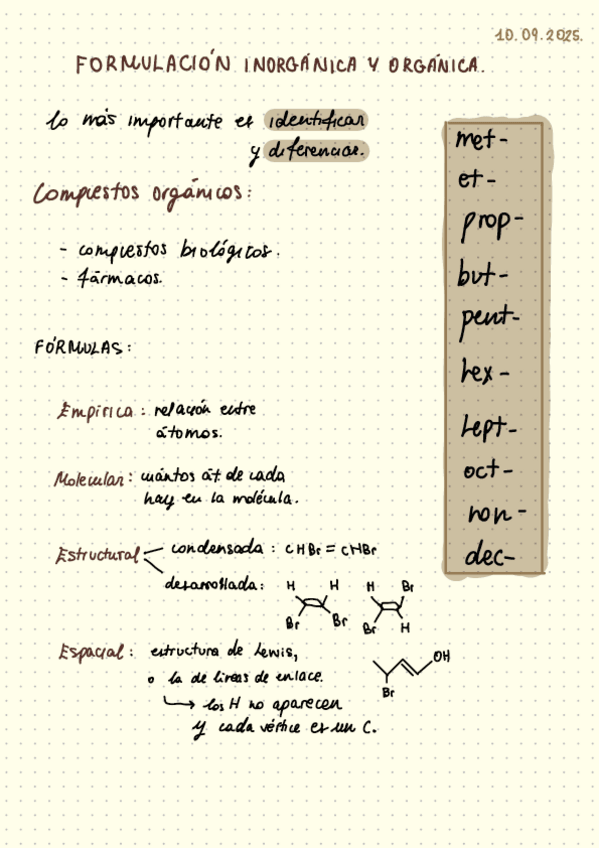 10.09.2025.
FORMULACIÓN INORGÁNICA Y ORGÁNICA.
lo más importante es identificar
y diferenciar.
Compuestos orgánicos:
- compuestos biológicos.
- fármacos.
met-
et-
prop-
but-
pent-
hex-
hept-
oct-
non-
dec-
FÓRMULAS:
Empírica: relación entre
átomos.
Molecular: cuántos át. de cada
hay en la molécula.
Estructural
condensada: CHBr = CHBr
desarrollada:
H H
Br Br
H Br
Br H
Espacial: estructura de Lewis,
o la de líneas de enlace.
los H no aparecen
y cada vértice es un C.
OH
Br